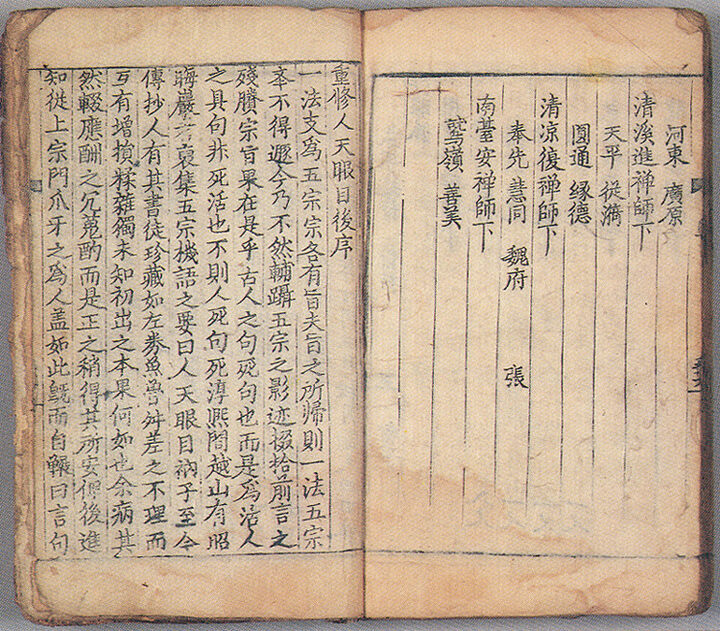 河東 廣原
清溪進禪師下
天平 從漪
圓通 緣德
清凉復禪師下
奉先 慧同 魏府 張
南臺安禪師下
鷲嶺 善美
重修人天眼目後序
一法支爲五宗宗各有旨夫旨之所帰則一法五宗
不得遯今乃不然輔躡五宗之影迹掇拾前言之
殘賸宗旨果在是乎古人之句死句也而是爲活人
之具句非死活也不則人死句死淳熙間越山有昭
晦巖者裒集五宗機語之要曰人天眼目衲子至今
傳抄人有其書徒珎藏如左券魚魯舛差之不理而
互有增損糅雜獨未知初出之本果何如也余病其
然輟應酬之冗苐酌而是正之稍得其所安俾後進
知從上宗門爪牙之爲人盖如此旣而自囅曰言句